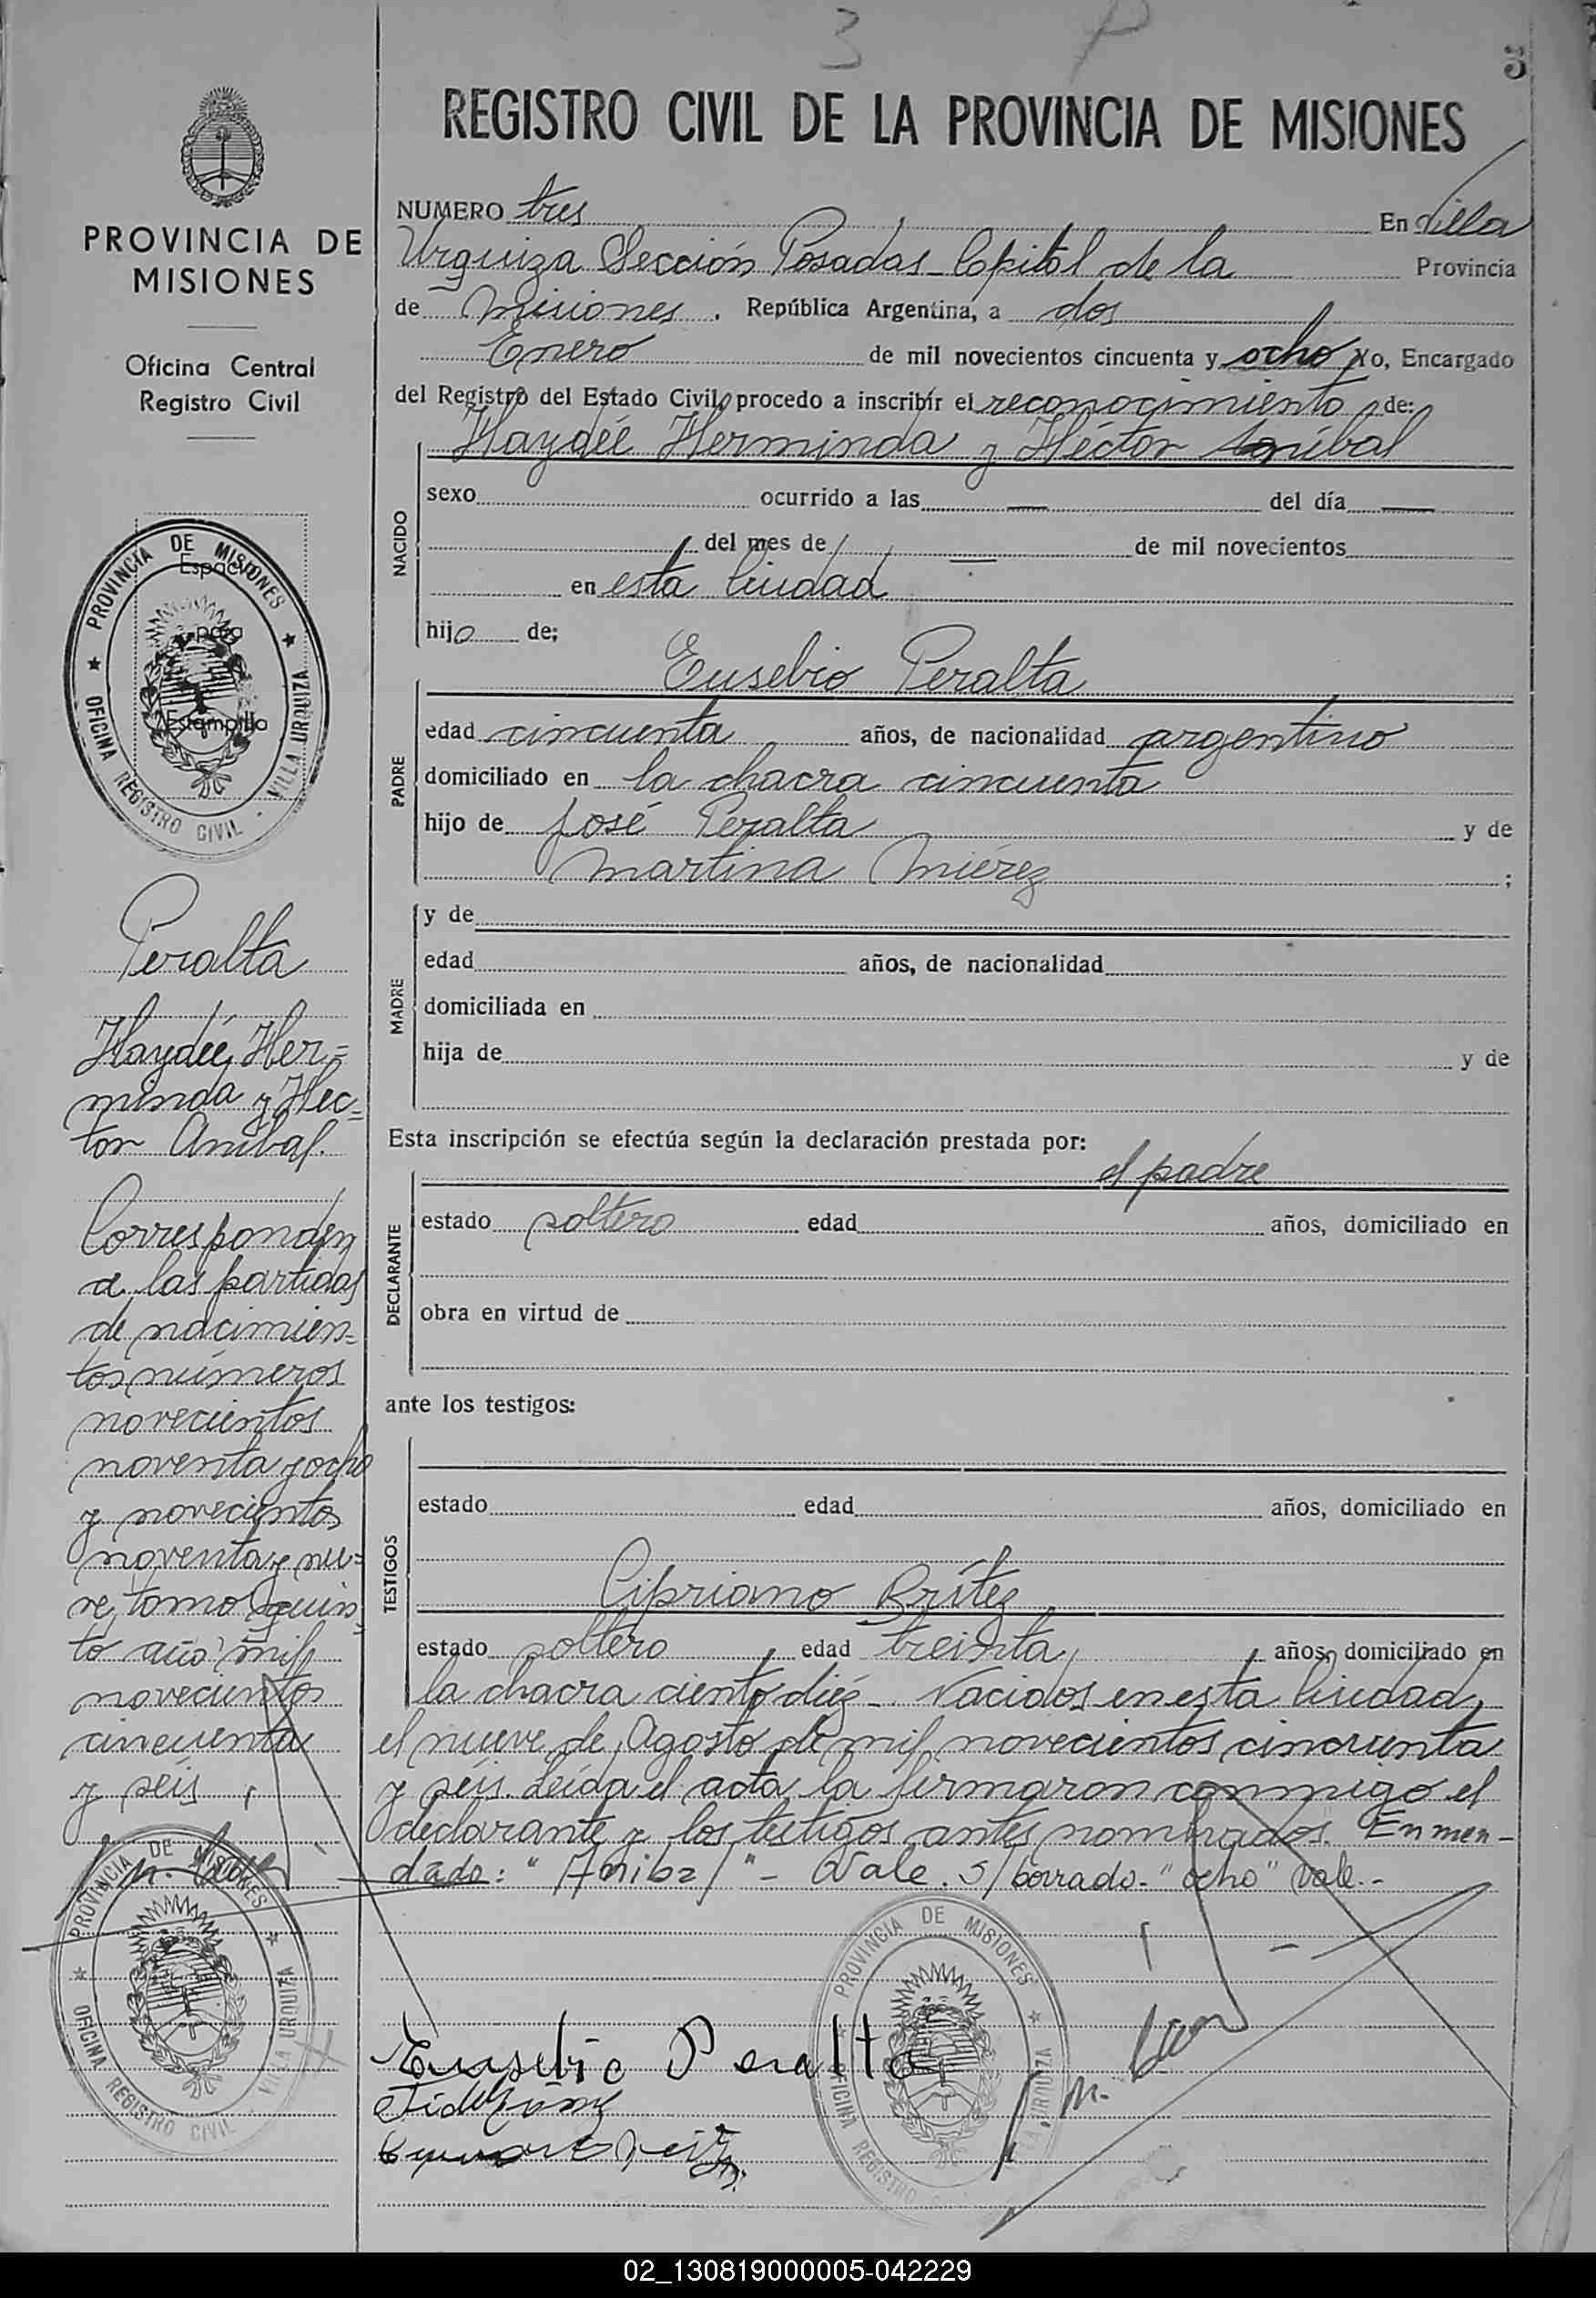 3 P
3
REGISTRO CIVIL DE LA PROVINCIA DE MISIONES
NUMERO tres En Villa
Urquiza Sección Posadas Capital de la Provincia
de Misiones. República Argentina, a dos
Enero de mil novecientos cincuenta y ocho Yo, Encargado
del Registro del Estado Civil, procedo a inscribir el reconocimiento de:
NACIDO
Haydée Herminda y Héctor Aníbal
sexo ocurrido a las — del día —
del mes de — de mil novecientos
en esta Ciudad
hijo de;
PADRE
Eusebio Peralta
edad cincuenta años, de nacionalidad argentino
domiciliado en la chacra cincuenta
hijo de José Peralta y de
Martina Miérez ;
MADRE
y de
edad años, de nacionalidad
domiciliada en
hija de y de
Esta inscripción se efectúa según la declaración prestada por:
DECLARANTE
el padre
estado soltero edad años, domiciliado en
obra en virtud de
ante los testigos:
TESTIGOS
estado edad años, domiciliado en
Cipriano Brítez
estado soltero edad treinta años, domiciliado en
la chacra ciento diéz - Nacidos en esta Ciudad,
el nueve de Agosto de mil novecientos cincuenta
y séis. Leída el acta, la firmaron conmigo el
declarante y los testigos antes nombrados. Enmen-
dado: "Anibal" - Vale. S/borrado- "ocho" Vale.-
Eusebio Peralta
PROVINCIA DE
MISIONES
Oficina Central
Registro Civil
PROVINCIA DE MISIONES
OFICINA REGISTRO CIVIL - VILLA URQUIZA
Espacio
para
Estampilla
Peralta
Haydée Her=
minda y Héc=
tor Aníbal.
Corresponden
a las partidas
de nacimien=
tos números
novecientos
noventa y ocho
y novecientos
noventa y nue=
ve, tomo quin=
to año mil
novecientos
cincuenta
y séis
PROVINCIA DE MISIONES
OFICINA REGISTRO CIVIL - VILLA URQUIZA
PROVINCIA DE MISIONES
OFICINA REGISTRO VILLA URQUIZA
02_130819000005-042229